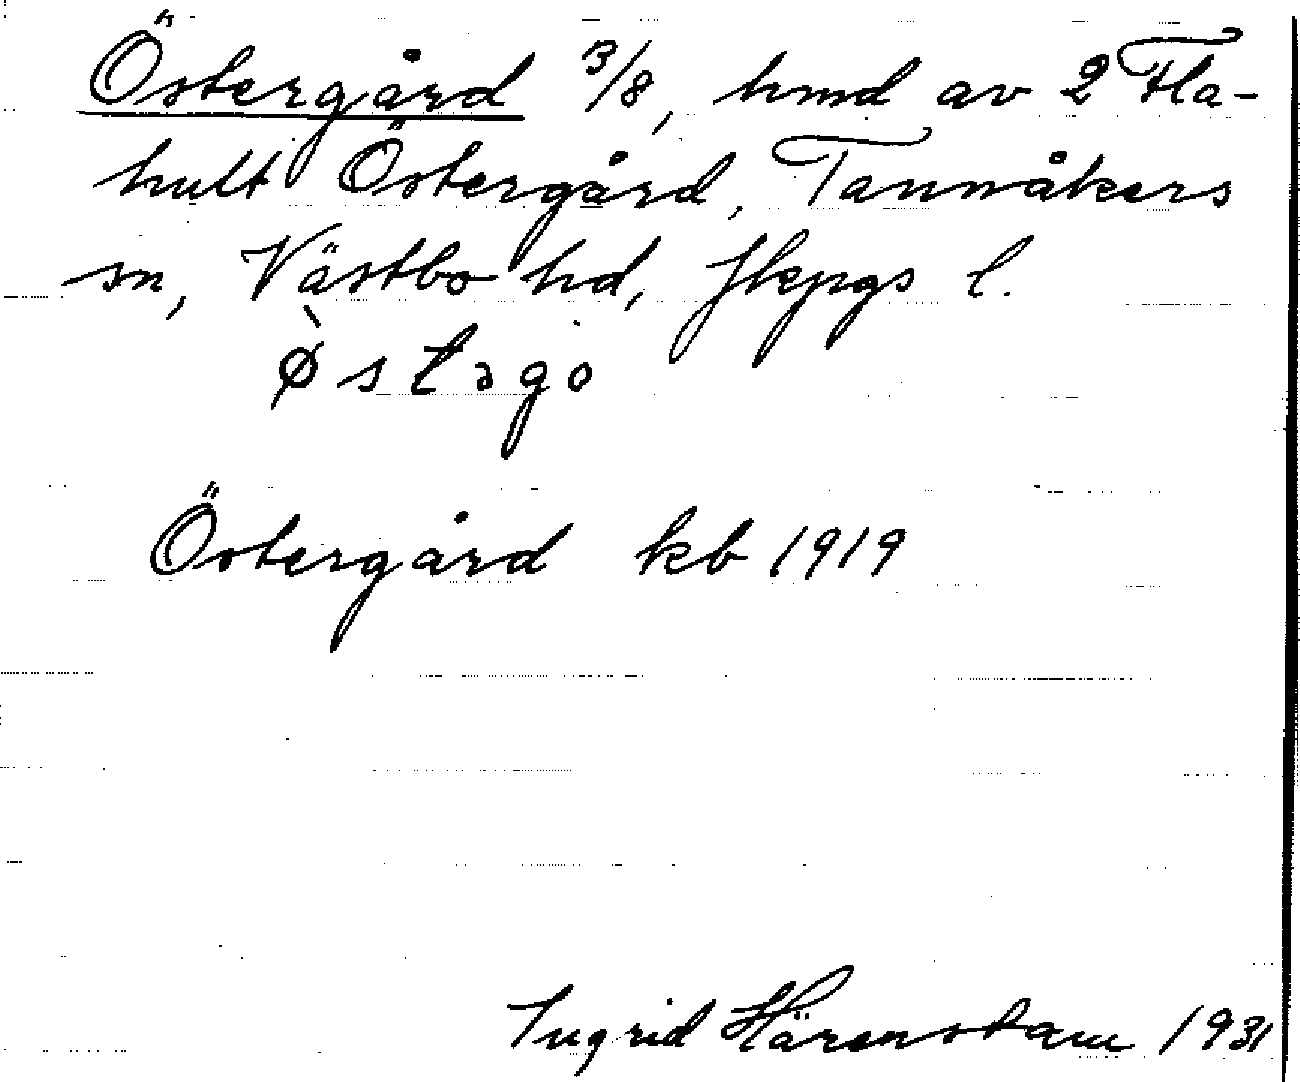 Östergård 3/8, hmd av 2 Fla-
hult Östergård, Tannåkers
sn, Västbo hd, Jkpgs l.
ø̀stəgo
Östergård kb 1919
Ingrid Härenstam 1931